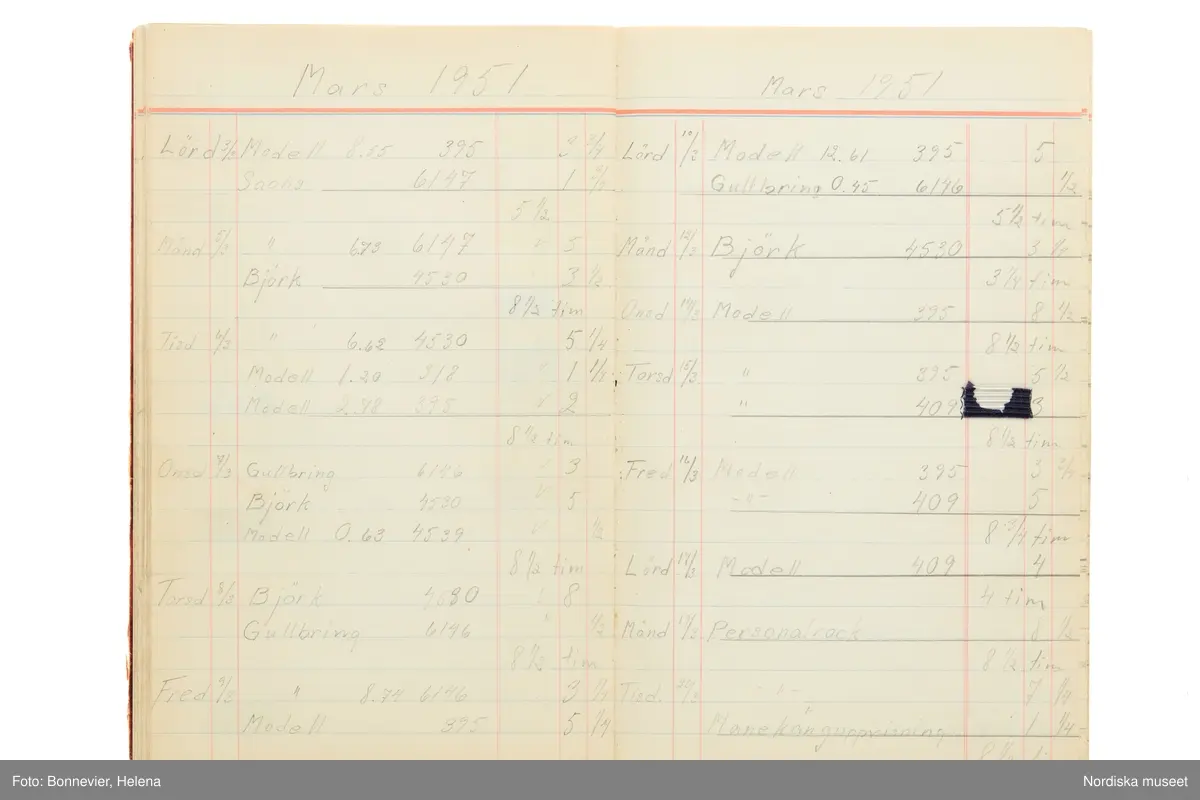 Mars 1951
Lörd 3/3 Modell 8.55 395 3 3/4
6147 1
5 1/2
Månd 5/3 " 6147 5
Björk 4530 3 1/2
8 1/2 tim
Tisd 6/3 " 6.62 4530 5 1/4
Modell 1.20 318 1
Modell 395 2
8 1/2 tim
Onsd 7/3 Gullbring 6146 3
Björk 4530 5
Modell 0.63 4539 1/2
8 1/2 tim
Torsd 8/3 Björk 4530 8
Gullbring 6146 1/2
8 1/2 tim
Fred 9/3 " 8.74 6146 3 1/4
Modell 395 5 1/4
Mars 1951
Lörd 10/3 Modell 12.61 395 5
Gullbring 0.45 6146 1/2
5 1/2 tim
Månd 12/3 Björk 4530 3 1/4
3 1/4 tim
Onsd 14/3 Modell 395 8 1/2
8 1/2 tim
Torsd 15/3 " 395 5 1/2
" 409 3
8 1/2 tim
Fred 16/3 Modell 395 3 3/4
-"- 409 5
8 3/4 tim
Lörd 17/3 Modell 409 4
4 tim
Månd Personalrock 8 1/2
8 1/2 tim
Tisd. -"- 7 1/4
Manekänguppvisning 1 1/4
Foto: Bonnevier, Helena
Nordiska museet